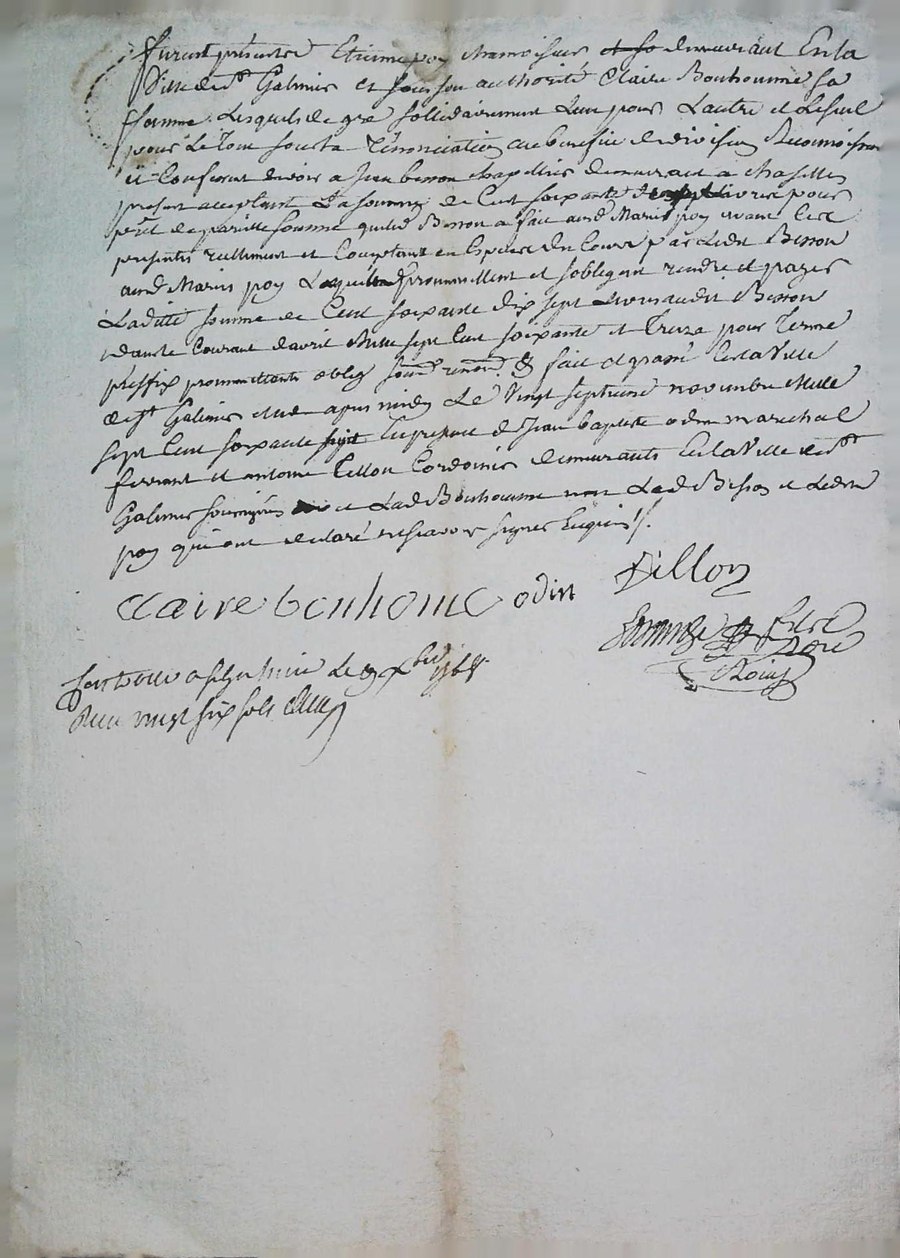 furent présents Etienne poy chamoiseur et so demeurant En la
Ville de St Galmier et sous son authorité Claire Bonhomme sa
femme Lesquels de gré sollidairement L'un pour L'autre et Le seul
pour Le Tout sous La rénonciation au benefice de division
Confessent devoir a Jean besson chapellier demeurant a chaselles
présent acceptant La somme de Cent soixante dix sept Livres pour
prêt de pareille somme que led Besson a fait aud Mariés poy avant Les
presentes réellement et Comptant en Especes du Cours par Ledit Besson
aud Mariés poy Lesquels promettent et sobligent rendre et payer
Ladite somme de Cent soixante dix sept Livres audit Besson
dans le Courant davril Mille sept Cent soixante et Treize pour Terme
préffix promettants oblig soum renon &c fait et passé En la Ville
de St Galmier etude apres midy Le Vingt septieme novembre Mille
sept Cent soixante En presence de Jean baptiste odin maréchal
ferrant et antoine Dillon Cordonier demeurants En la Ville de St
Galmier soussignés avec Lad Bonhomme non Led Besson et Ledit
poy qui ont declaré ne scavoir signer Enquis /.
claire bonhome odin Dillon
Noire
Controlé a st galmier Le 9 xbre
Reçu vingt six sols